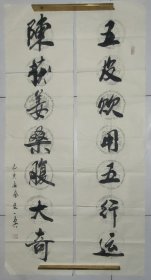 五皮飲用五行运
陳茯姜桑腹大奇